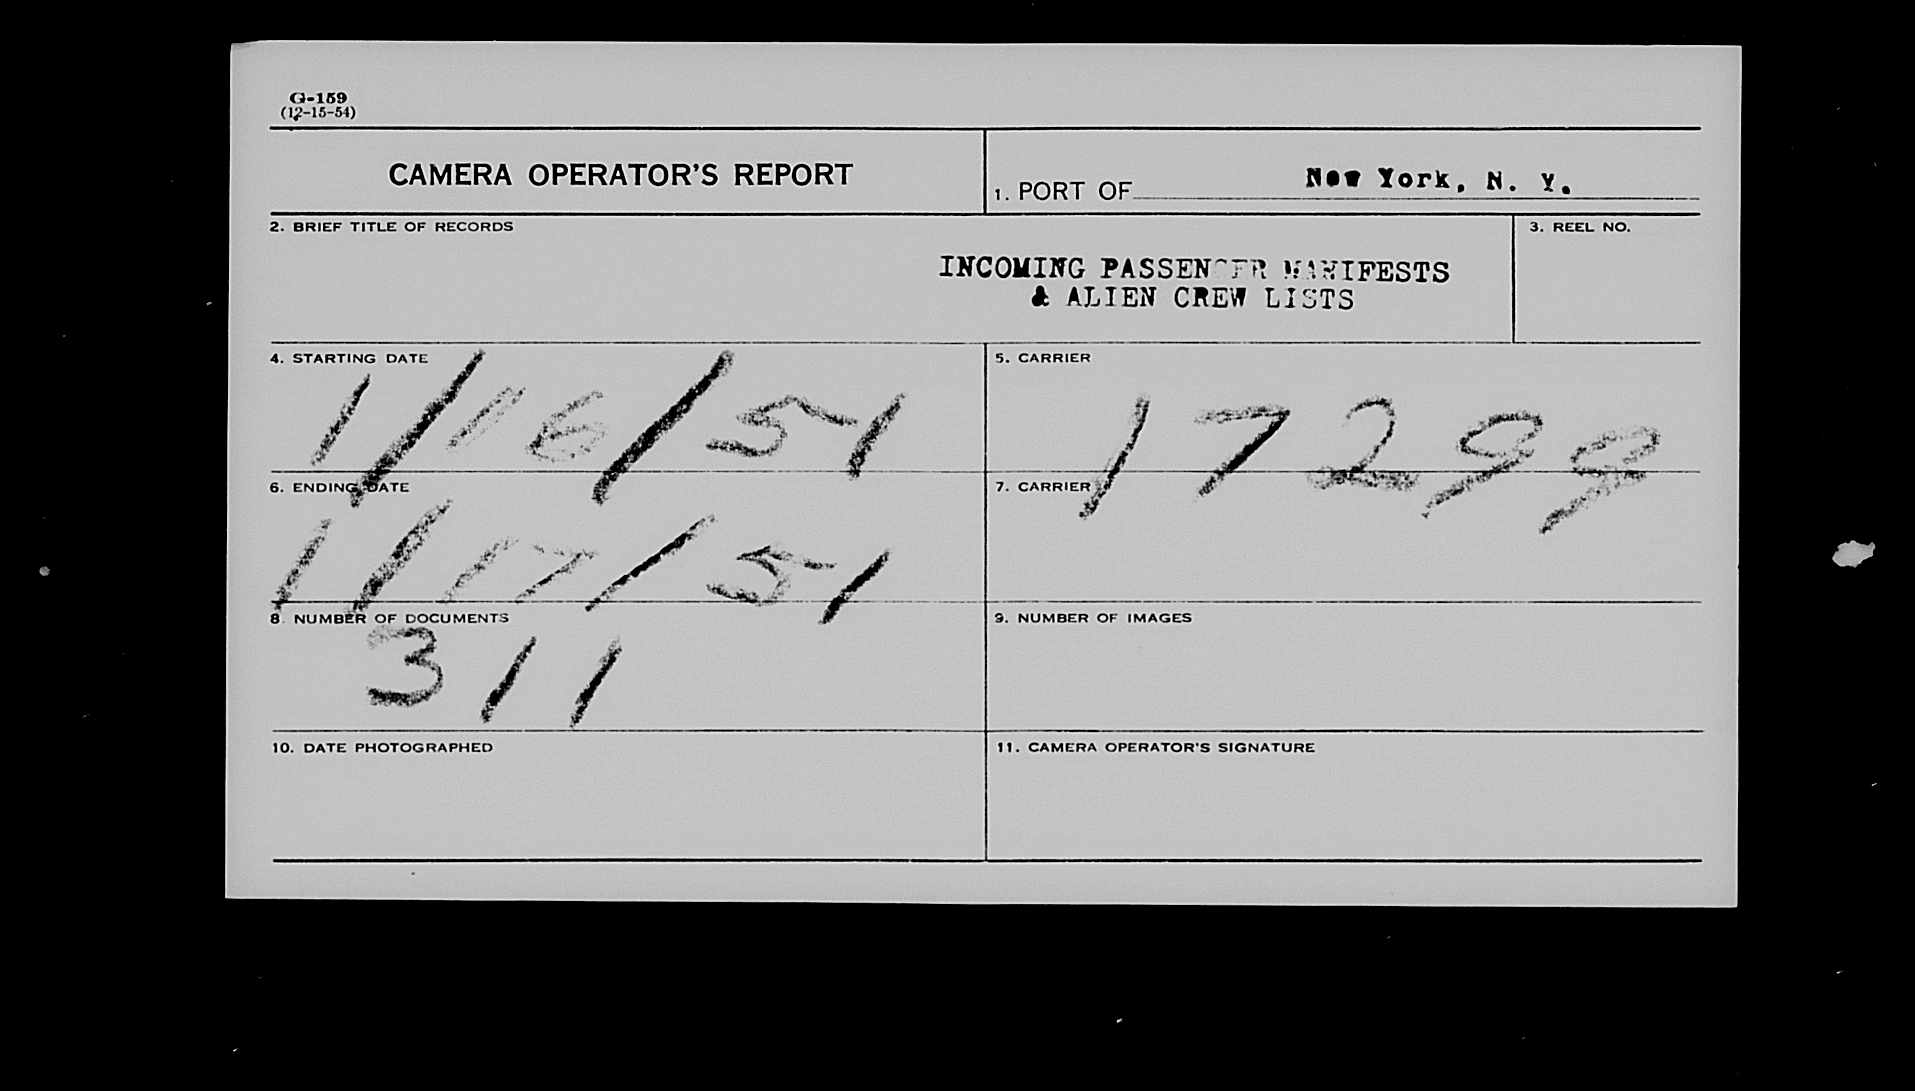 G-159
(12-15-54)
CAMERA OPERATOR'S REPORT
1. PORT OF New York, N. Y.
2. BRIEF TITLE OF RECORDS
3. REEL NO.
INCOMING PASSENGER MANIFESTS
& ALIEN CREW LISTS
4. STARTING DATE
1/16/51
5. CARRIER
17299
6. ENDING DATE
1/17/51
7. CARRIER
8. NUMBER OF DOCUMENTS
311
9. NUMBER OF IMAGES
10. DATE PHOTOGRAPHED
11. CAMERA OPERATOR'S SIGNATURE